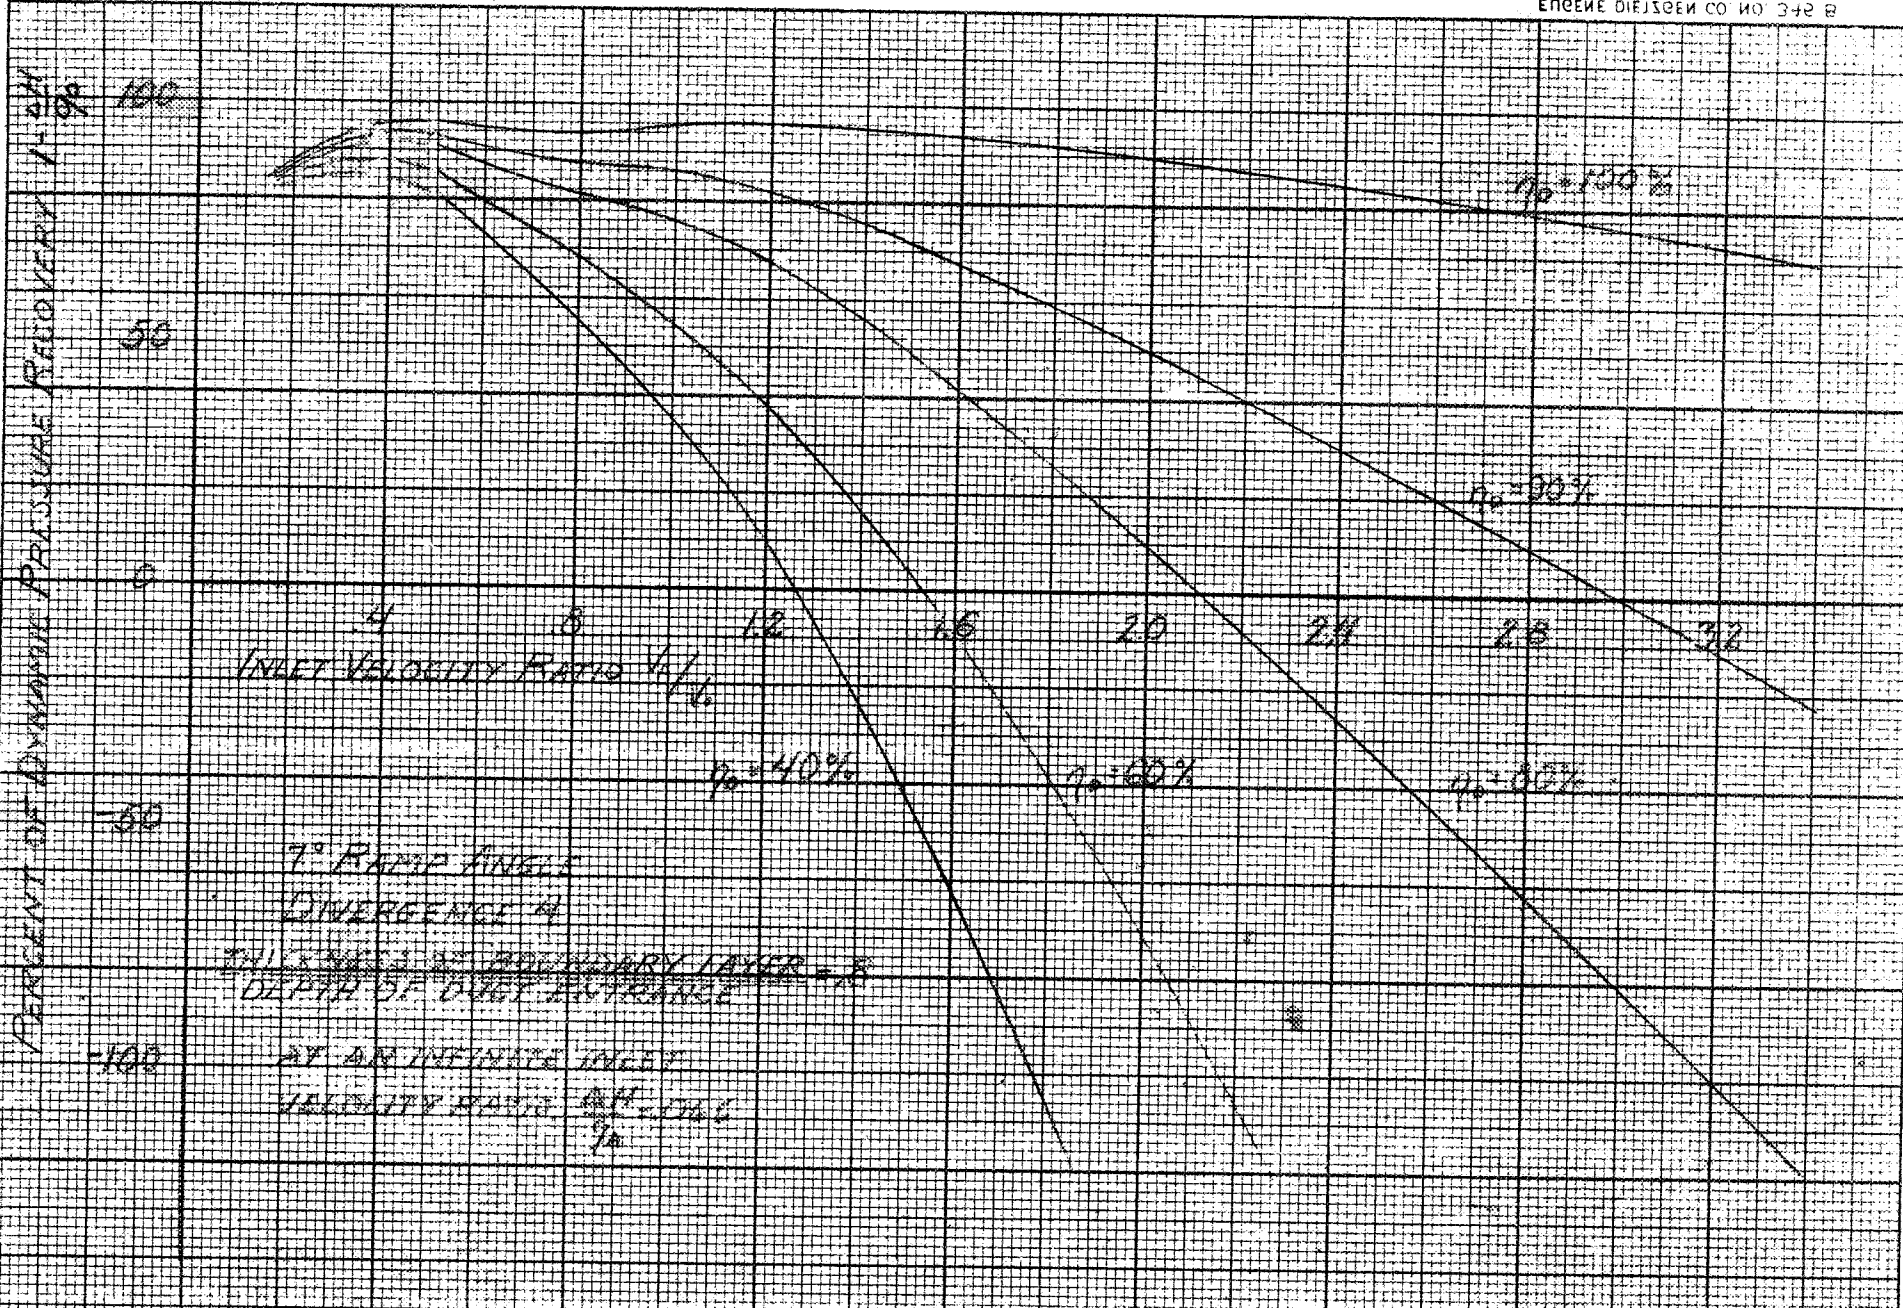 EUGENE DIETZGEN CO. NO. 346 B
PERCENT OF DYNAMIC PRESSURE RECOVERY 1-ΔH/q₀
100
50
0
-50
-100
.4 .8 1.2 1.6 2.0 2.4 2.8 3.2
INLET VELOCITY RATIO V₁/V₀
ηD=100%
ηD=90%
ηD=40% ηD=60% ηD=80%
7° RAMP ANGLE
DIVERGENCE 4
THICKNESS OF BOUNDARY LAYER = .8
DEPTH OF DUCT ENTRANCE
AT AN INFINITE INLET
VELOCITY RATIO, ΔH